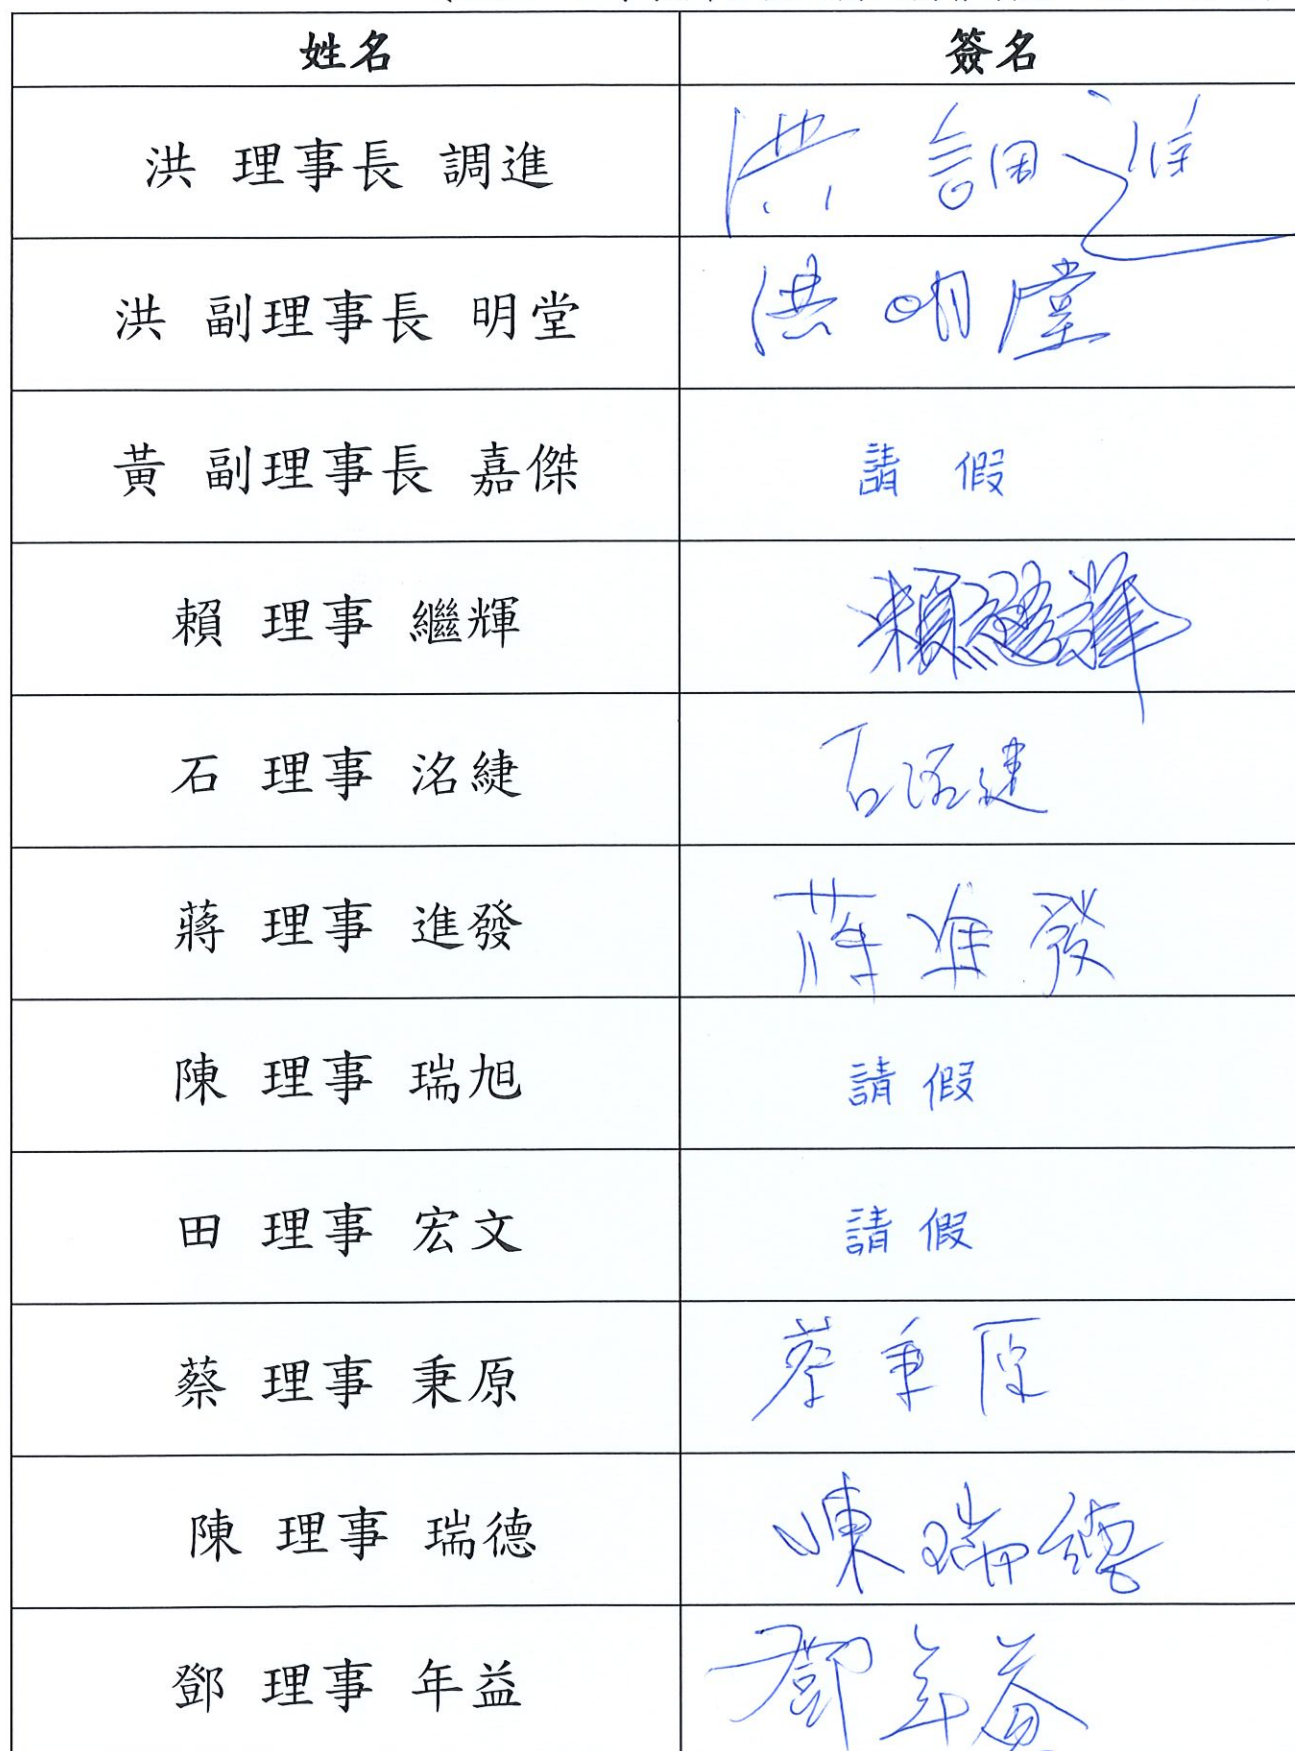 姓名 簽名
洪 理事長 調進 洪 調進
洪 副理事長 明堂 洪明堂
黃 副理事長 嘉傑 請 假
賴 理事 繼輝 賴繼輝
石 理事 洺緁 石洺緁
蔣 理事 進發 蔣進發
陳 理事 瑞旭 請假
田 理事 宏文 請假
蔡 理事 秉原 蔡秉原
陳 理事 瑞德 陳瑞德
鄧 理事 年益 鄧年益